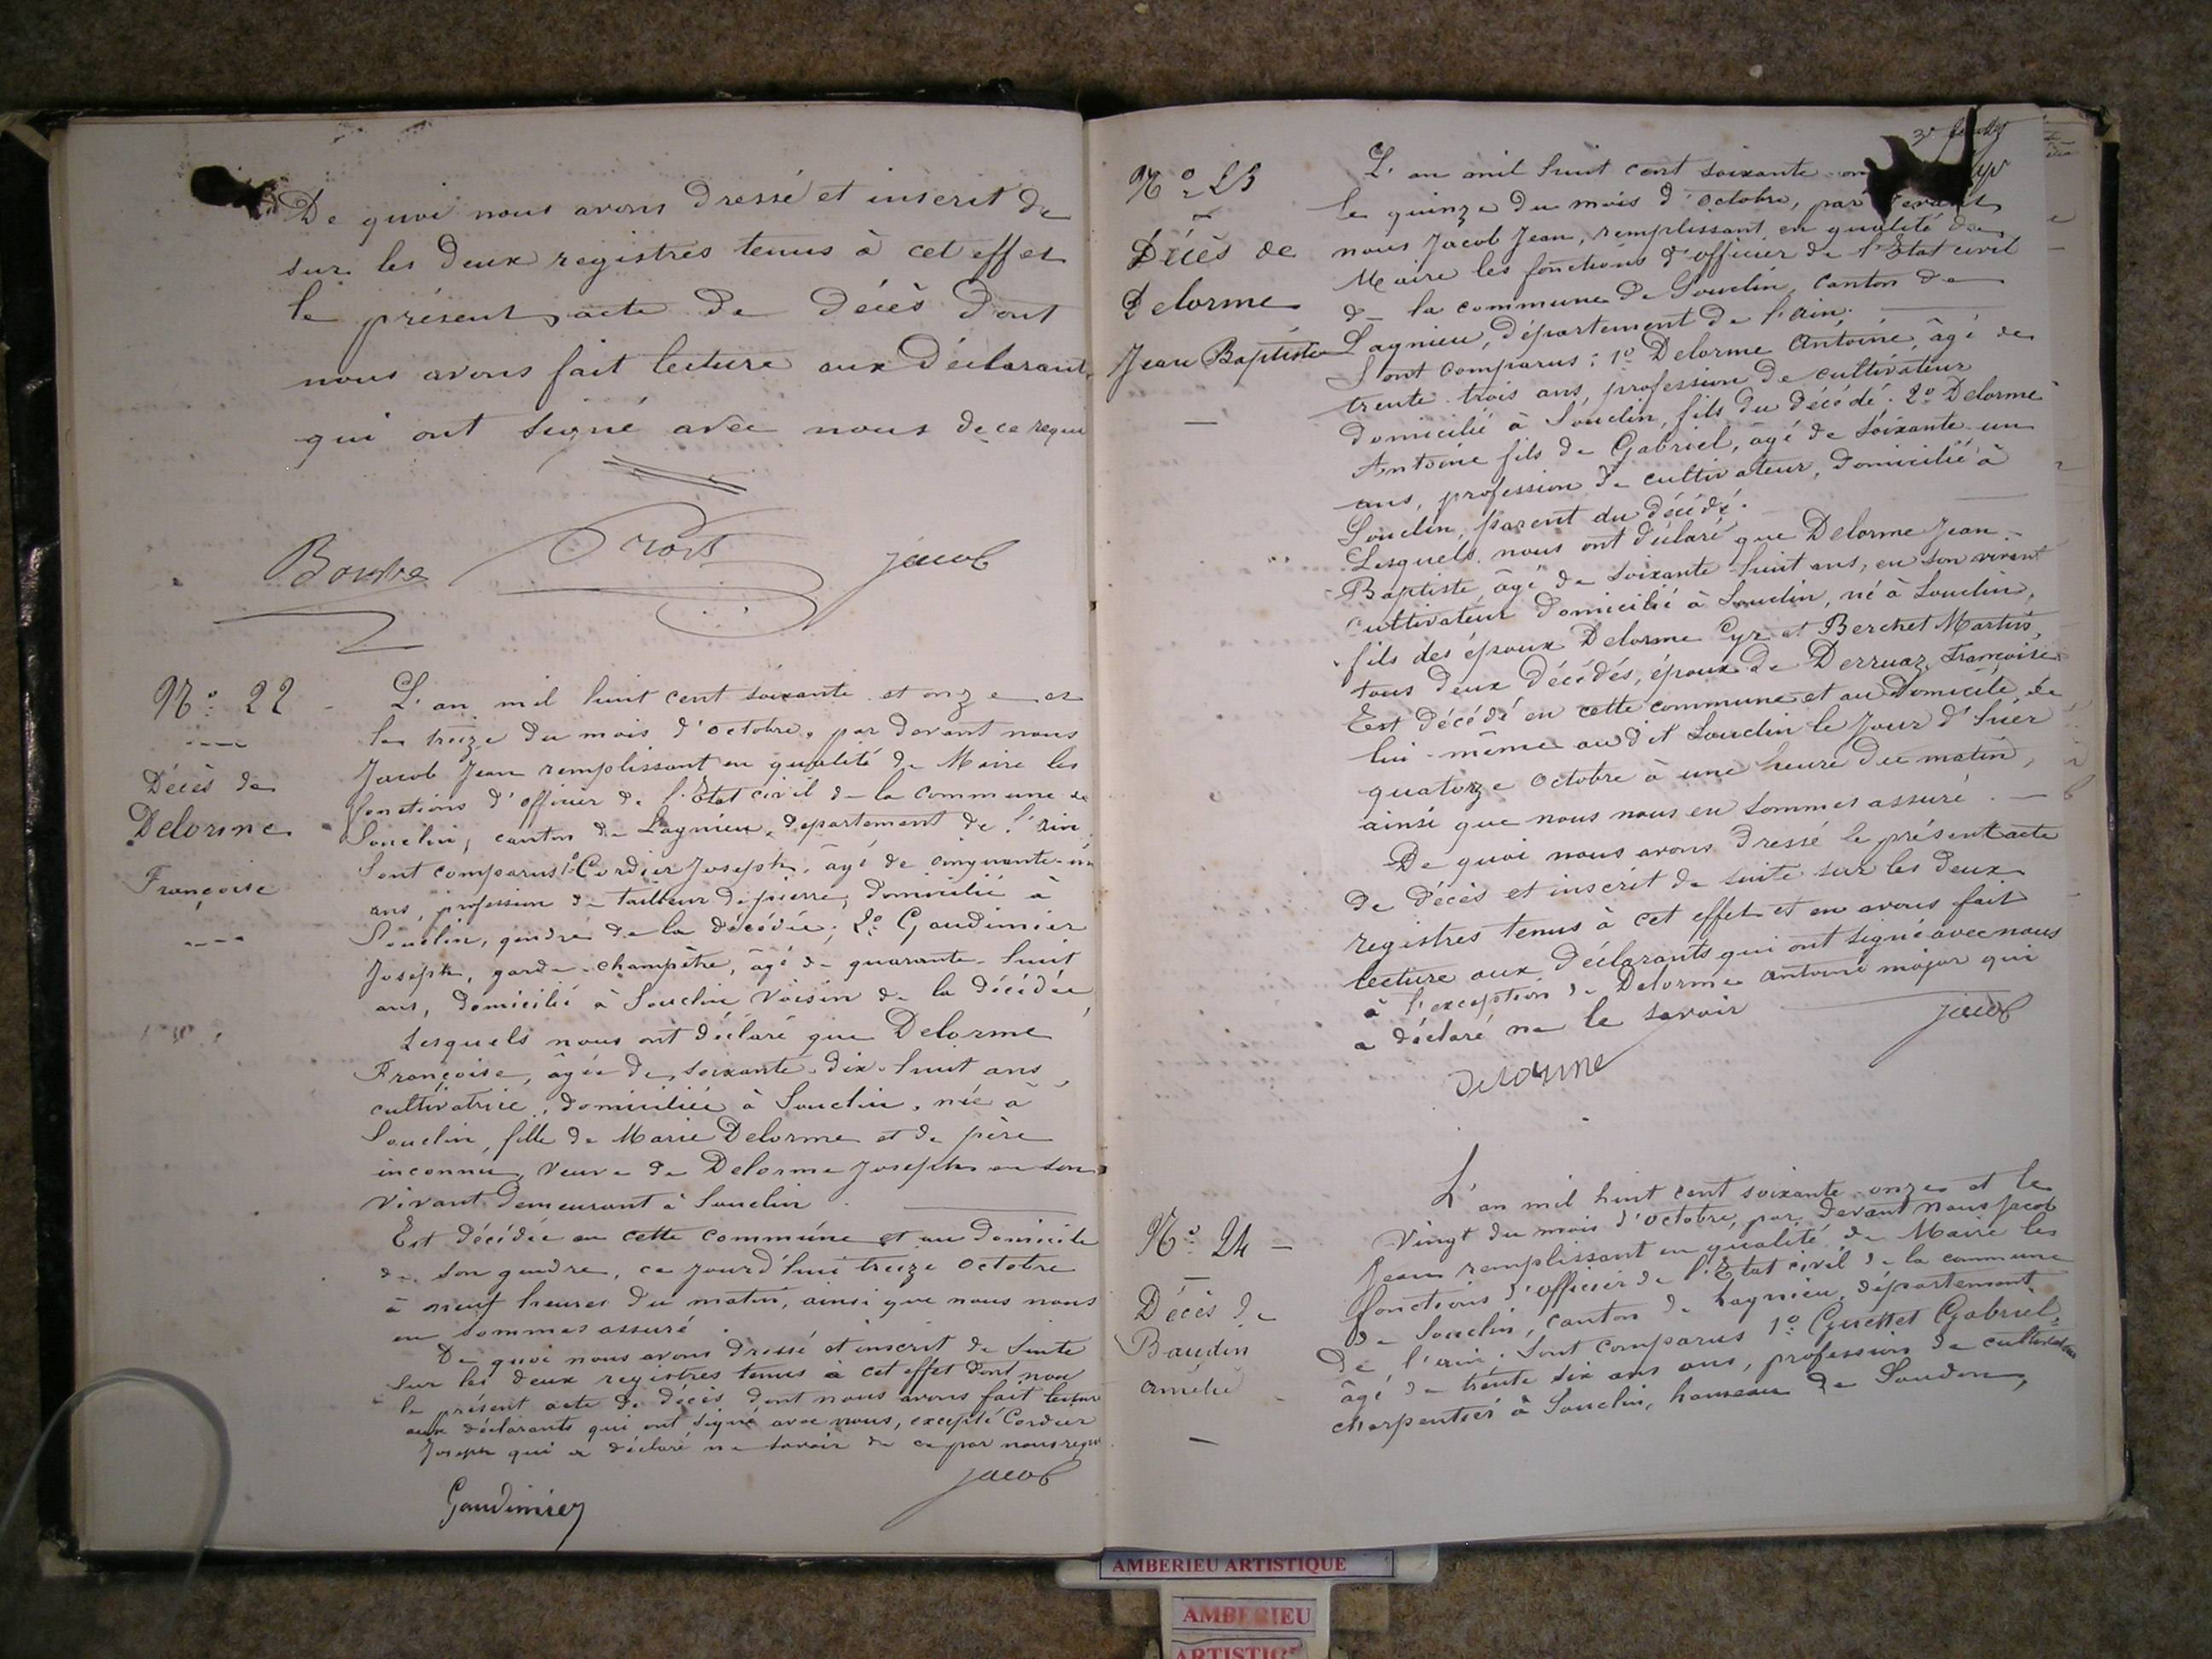 De quoi nous avons dressé et inscrit de
sur les deux registres tenus à cet effet
le présent acte de décès dont
nous avons fait lecture aux déclarants
qui ont signé avec nous de ce requi
Jacob
No 22
Décès de
Delorme
Françoise
L'an mil huit cent soixante et onze et
le treize du mois d'octobre, par devant nous
Jacob Jean remplissant en qualité de Maire les
fonctions d'officier de l'Etat civil de la commune de
Souclin, canton de Lagnieu, département de l'ain
Sont comparus 1o Cordier Joseph, âgé de cinquante-un
ans, profession de tailleur de pierre, domicilié à
Souclin, gendre de la décédée; 2o Gaudimier
Joseph, garde-champêtre, âgé de quarante-huit
ans, domicilié à Souclin voisin de la décédée,
Lesquels nous ont déclaré que Delorme
Françoise, âgée de soixante-dix-huit ans,
cultivatrice, domiciliée à Souclin, née à
Souclin, fille de Marie Delorme et de père
inconnu, veuve de Delorme Joseph en son
vivant demeurant à Souclin.
Est décédée en cette commune et au domicile
de son gendre, ce jourd'hui treize octobre
à neuf heures du matin, ainsi que nous nous
en sommes assuré.
De quoi nous avons dressé et inscrit de suite
sur les deux registres tenus à cet effet dont nous
le présent acte de décès dont nous avons fait lecture
aux déclarants qui ont signé avec nous, excepté Cordier
Joseph qui a déclaré ne savoir de ce par nous requi
Jacob
Gaudimier
No 23
Décès de
Delorme
Jean Baptiste
L'an mil huit cent soixante-on
le quinze du mois d'octobre, par devant
nous Jacob Jean, remplissant en qualité de
Maire les fonctions d'officier de l'Etat civil
de la commune de Souclin, canton de
Lagnieu, département de l'ain.
Sont comparus: 1o Delorme Antoine, âgé de
trente-trois ans, profession de cultivateur
domicilié à Souclin, fils du décédé. 2o Delorme
Antoine fils de Gabriel, âgé de soixante-un
ans, profession de cultivateur, domicilié à
Souclin, parent du décédé.
Lesquels nous ont déclaré que Delorme Jean-
Baptiste, âgé de soixante-huit ans, en son vivant
cultivateur domicilié à Souclin, né à Souclin,
fils des époux Delorme Cyr et Berchet
tous deux décédés, époux de Derruaz Françoise
Est décédé en cette commune et au domicile de
lui-même au dit Souclin le jour d'hier
quatorze octobre à une heure du matin,
ainsi que nous nous en sommes assuré.
De quoi nous avons dressé le présent acte
de décès et inscrit de suite sur les deux
registres tenus à cet effet et en avons fait
lecture aux déclarants qui ont signé avec nous
à l'exception de Delorme antoine major qui
a déclaré ne le savoir
Jacob
Delorme
No 24
Décès de
Baudin
amélie
L'an mil huit cent soixante-onze et le
vingt du mois d'octobre, par devant nous Jacob
Jean remplissant en qualité de Maire les
fonctions d'officier de l'Etat civil de la commune
de Souclin, canton de Lagnieu, département
de l'ain. Sont comparus 1o Guettet Gabriel,
âgé de trente six ans ans, profession de cultivateur
charpentier à Souclin, hameau de Soudon,
AMBERIEU ARTISTIQUE
AMBERIEU